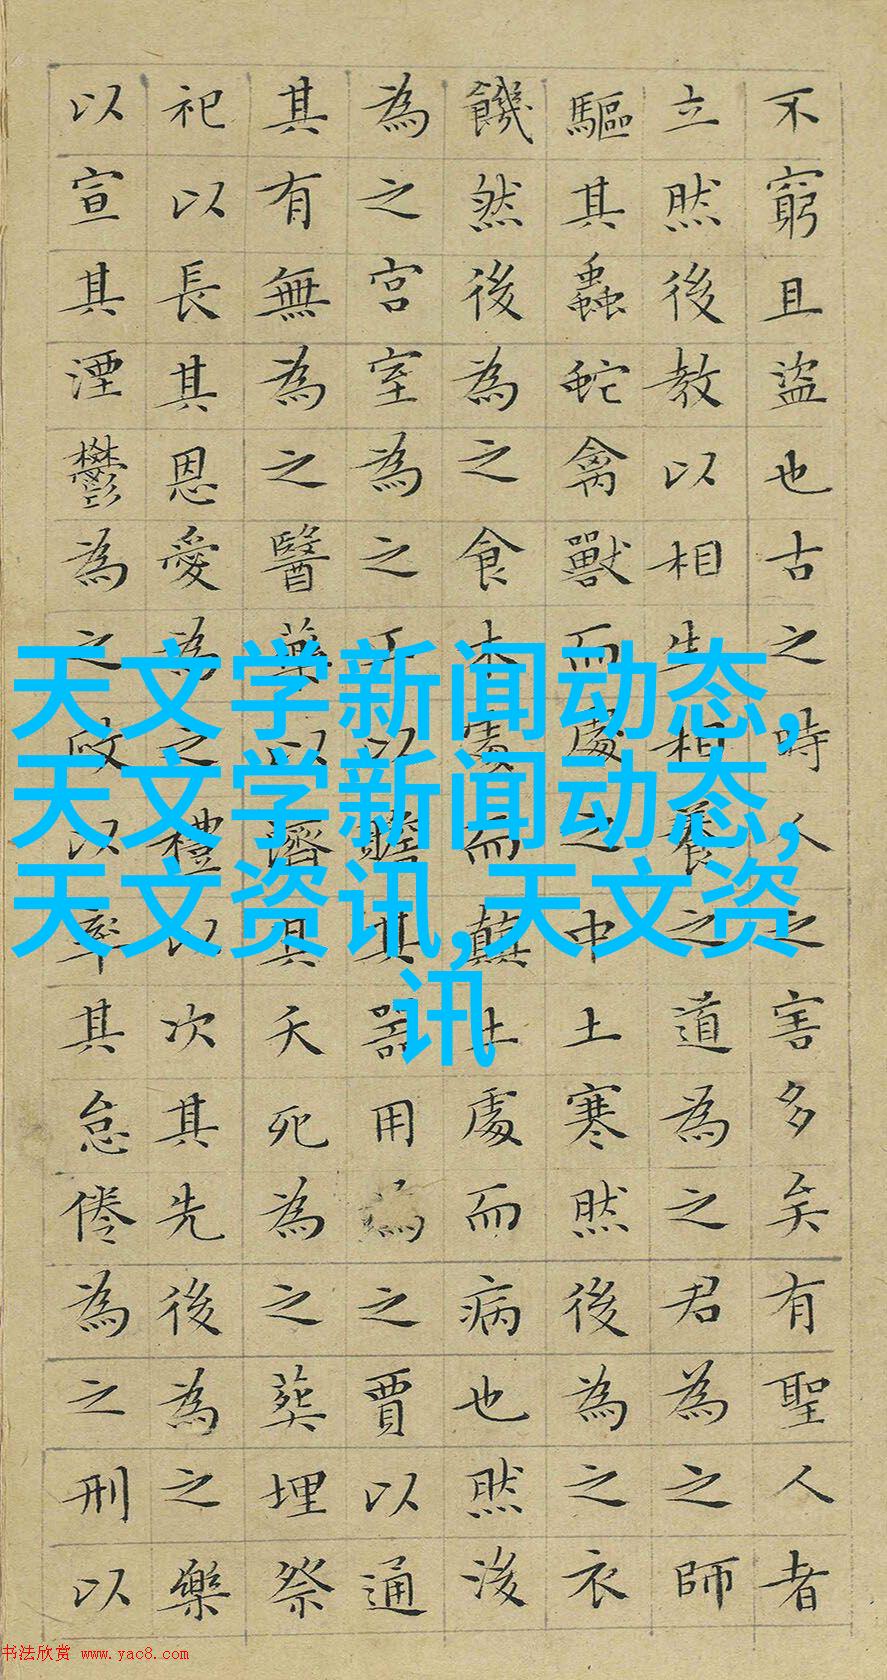 不窮且盜也古之時人之害多矣有聖人者
立然後教以相生相養之道為之君為之師
驅其蟲蛇禽獸而處之中土寒然後為之衣
饑然後為之食木處而顛土處而病也然後
為之宮室為之工以贍其器用為之賈以通
其有無為之醫藥以濟其夭死為之葬埋祭
祀以長其恩愛為之禮以次其先後為之樂
以宣其湮鬱為之政以率其怠倦為之刑以
天文学新闻动态,
天文学新闻动态,
天文资讯,天文资
讯
书法欣赏 www.yac8.com